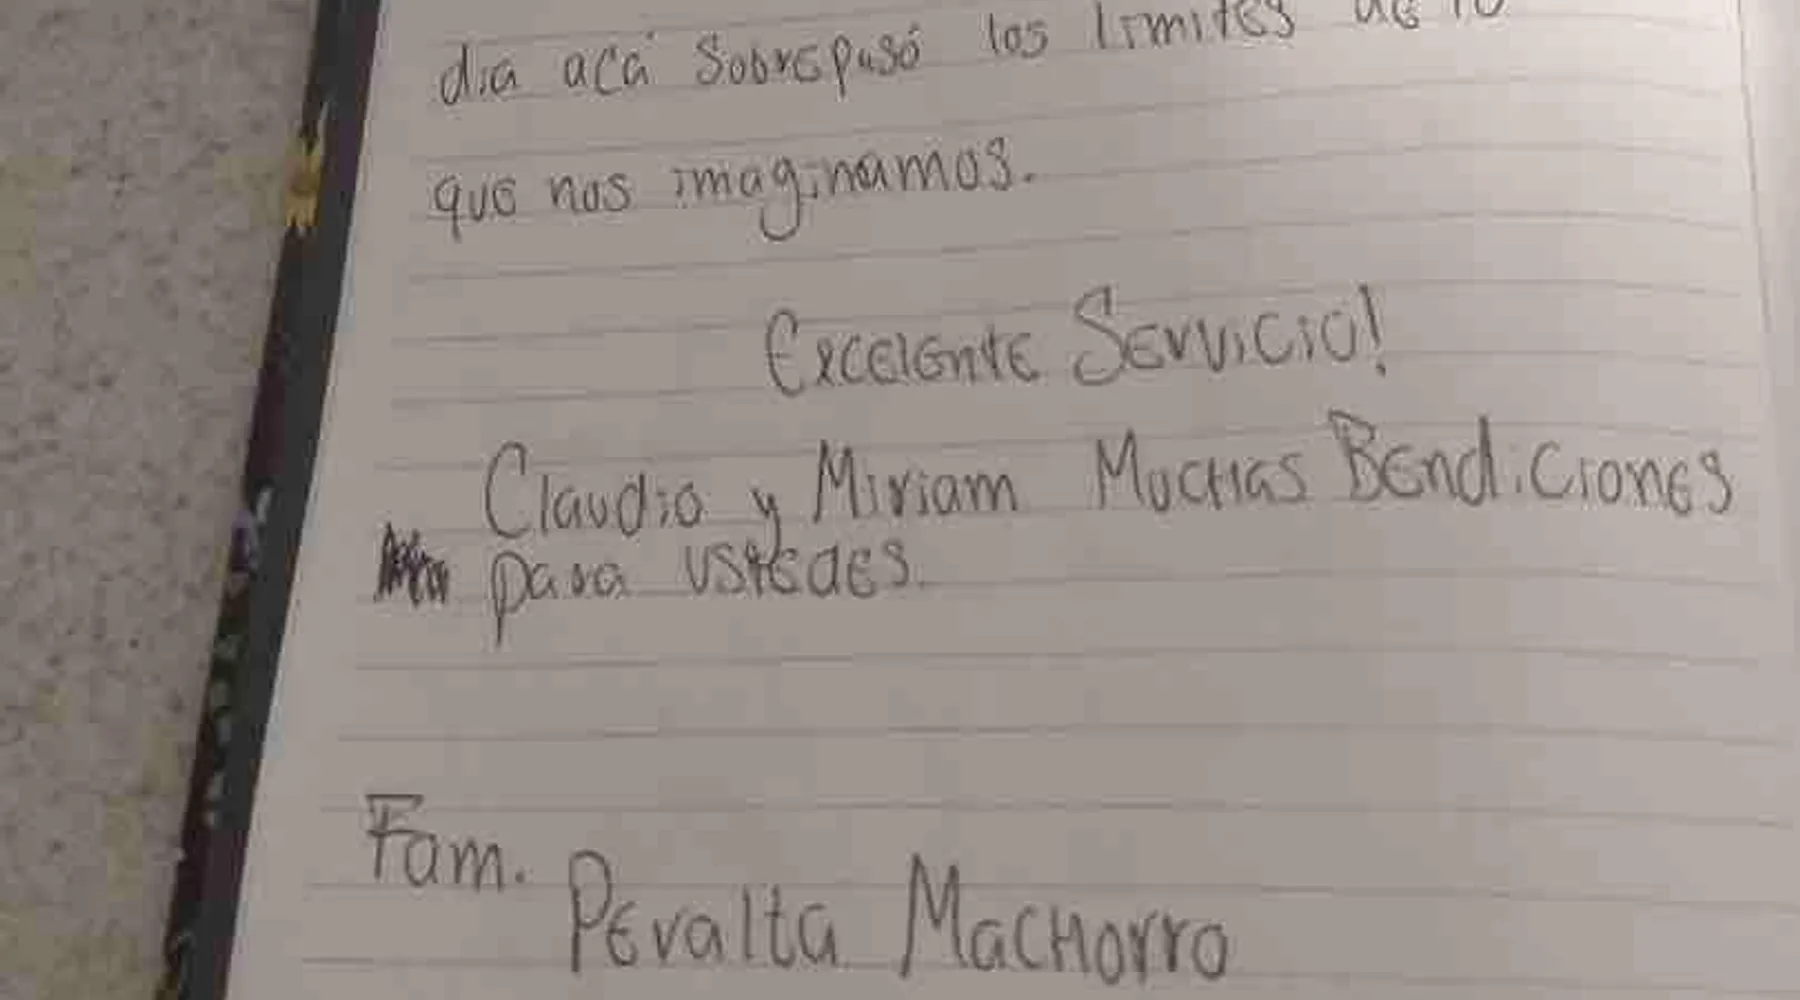 dia acá sobrepasó los limites de lo
que nos imaginamos.
Excelente Servicio!
Claudio y Miriam Muchas Bendiciones
para ustedes.
Fam. Peralta Machorro